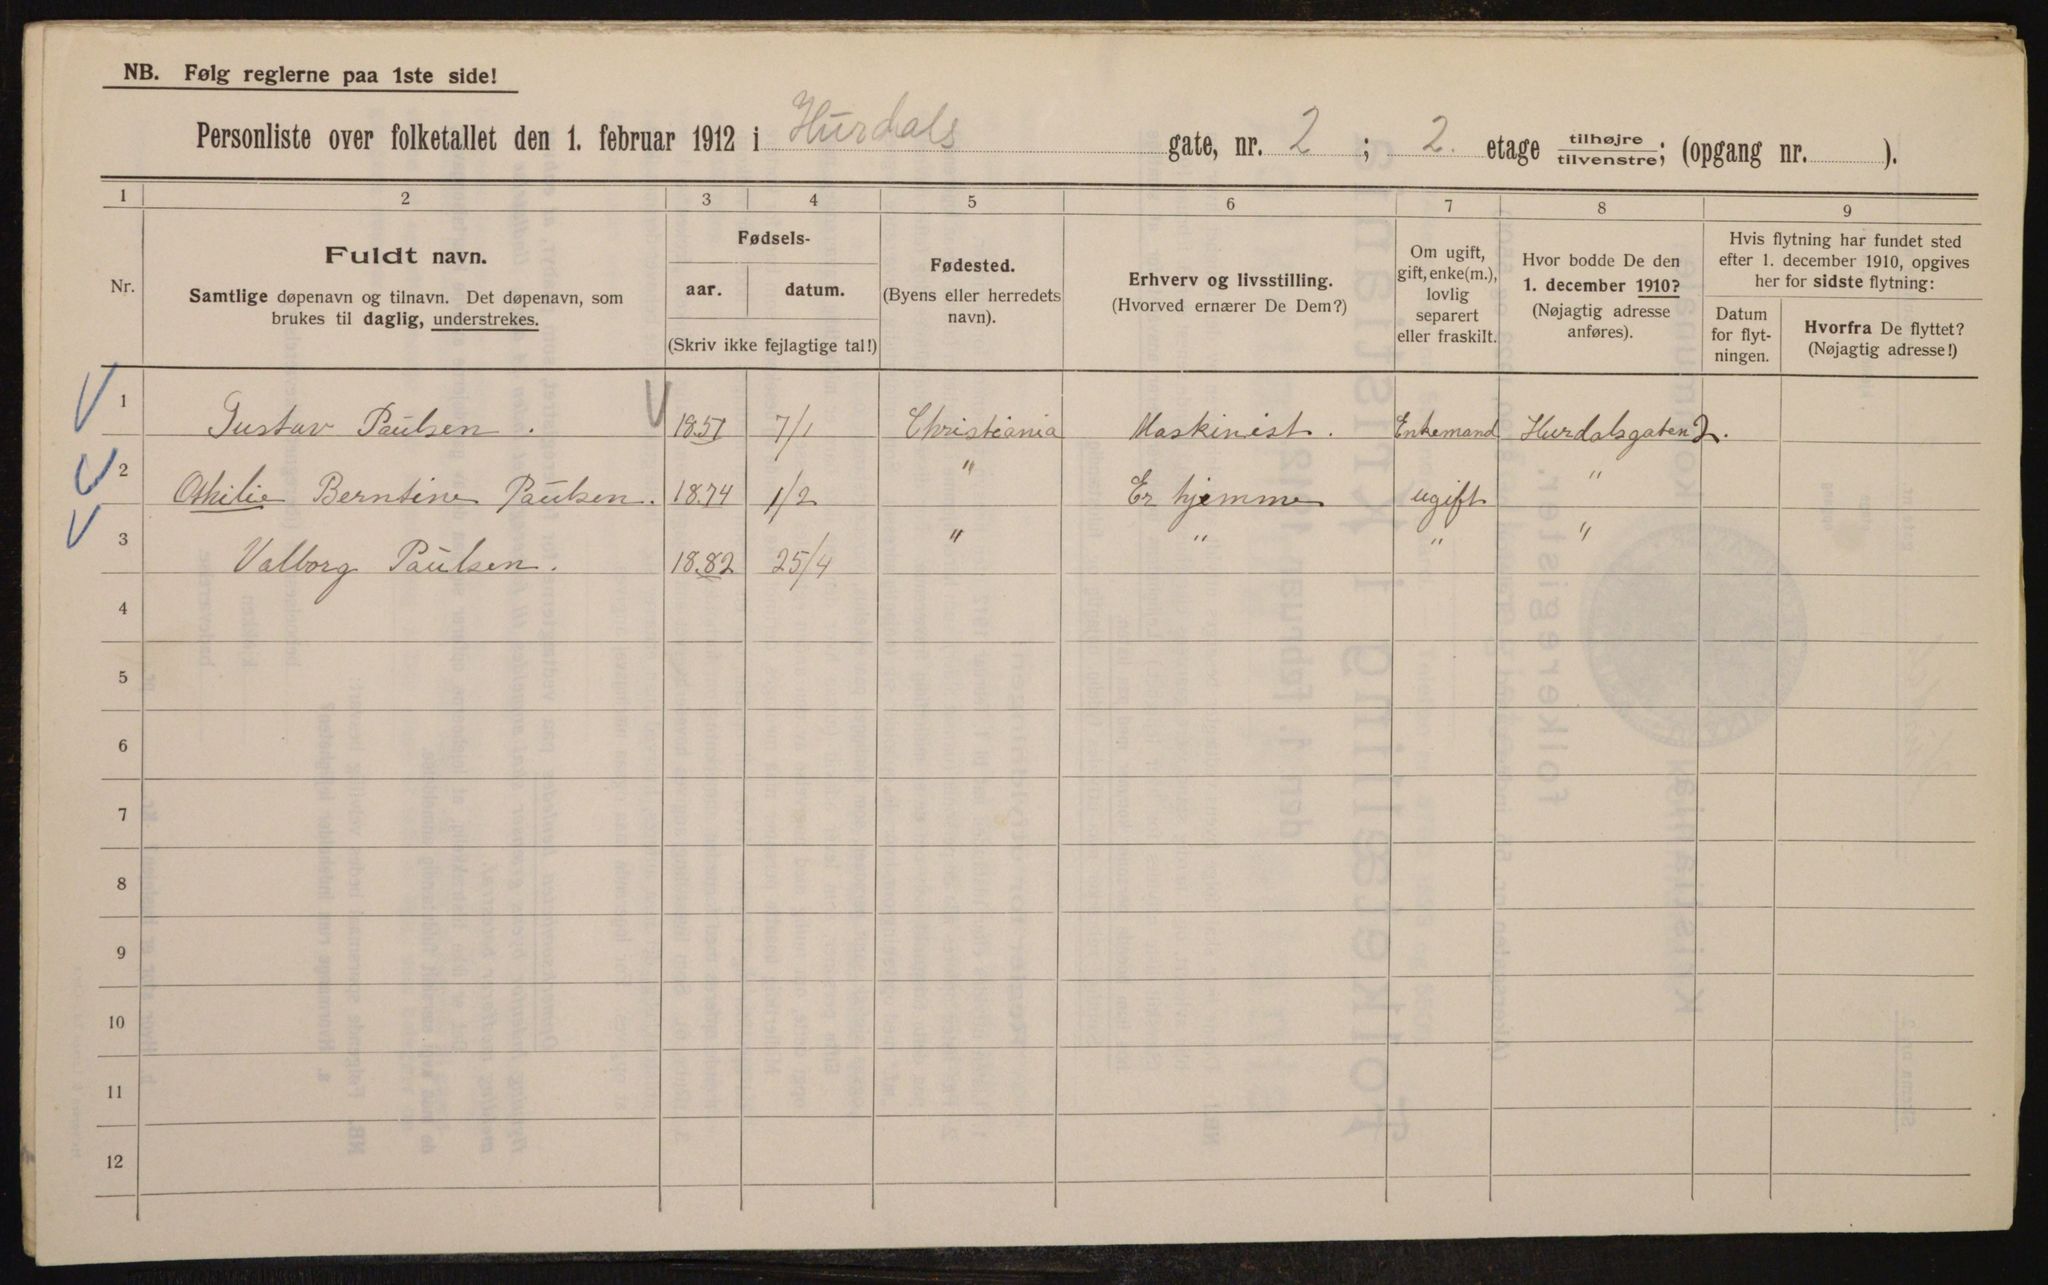 NB. Følg reglerne paa 1ste side!
Personliste over folketallet den 1. februar 1912 i Hurdals gate, nr. 2 ; 2. etage tilhøjre/tilvenstre; (opgang nr. ).
1 2 3 4 5 6 7 8 9
Nr.
Fuldt navn.
Samtlige døpenavn og tilnavn. Det døpenavn, som
brukes til daglig, understrekes.
Fødsels-
aar. datum.
(Skriv ikke fejlagtige tal!)
Fødested.
(Byens eller herredets
navn).
Erhverv og livsstilling.
(Hvorved ernærer De Dem?)
Om ugift,
gift, enke(m.),
lovlig
separert
eller fraskilt.
Hvor bodde De den
1. december 1910?
(Nøjagtig adresse
anføres).
Hvis flytning har fundet sted
efter 1. december 1910, opgives
her for sidste flytning:
Datum
for flyt-
ningen.
Hvorfra De flyttet?
(Nøjagtig adresse!)
1 Gustav Paulsen. 1851 7/1 Christiania Maskinist. Enkemand Hurdalsgaten 2.
2 Othilie Berntine Paulsen. 1874 1/2 " Er hjemme ugift "
3 Valborg Paulsen. 1882 25/4 " " " "
4
5
6
7
8
9
10
11
12